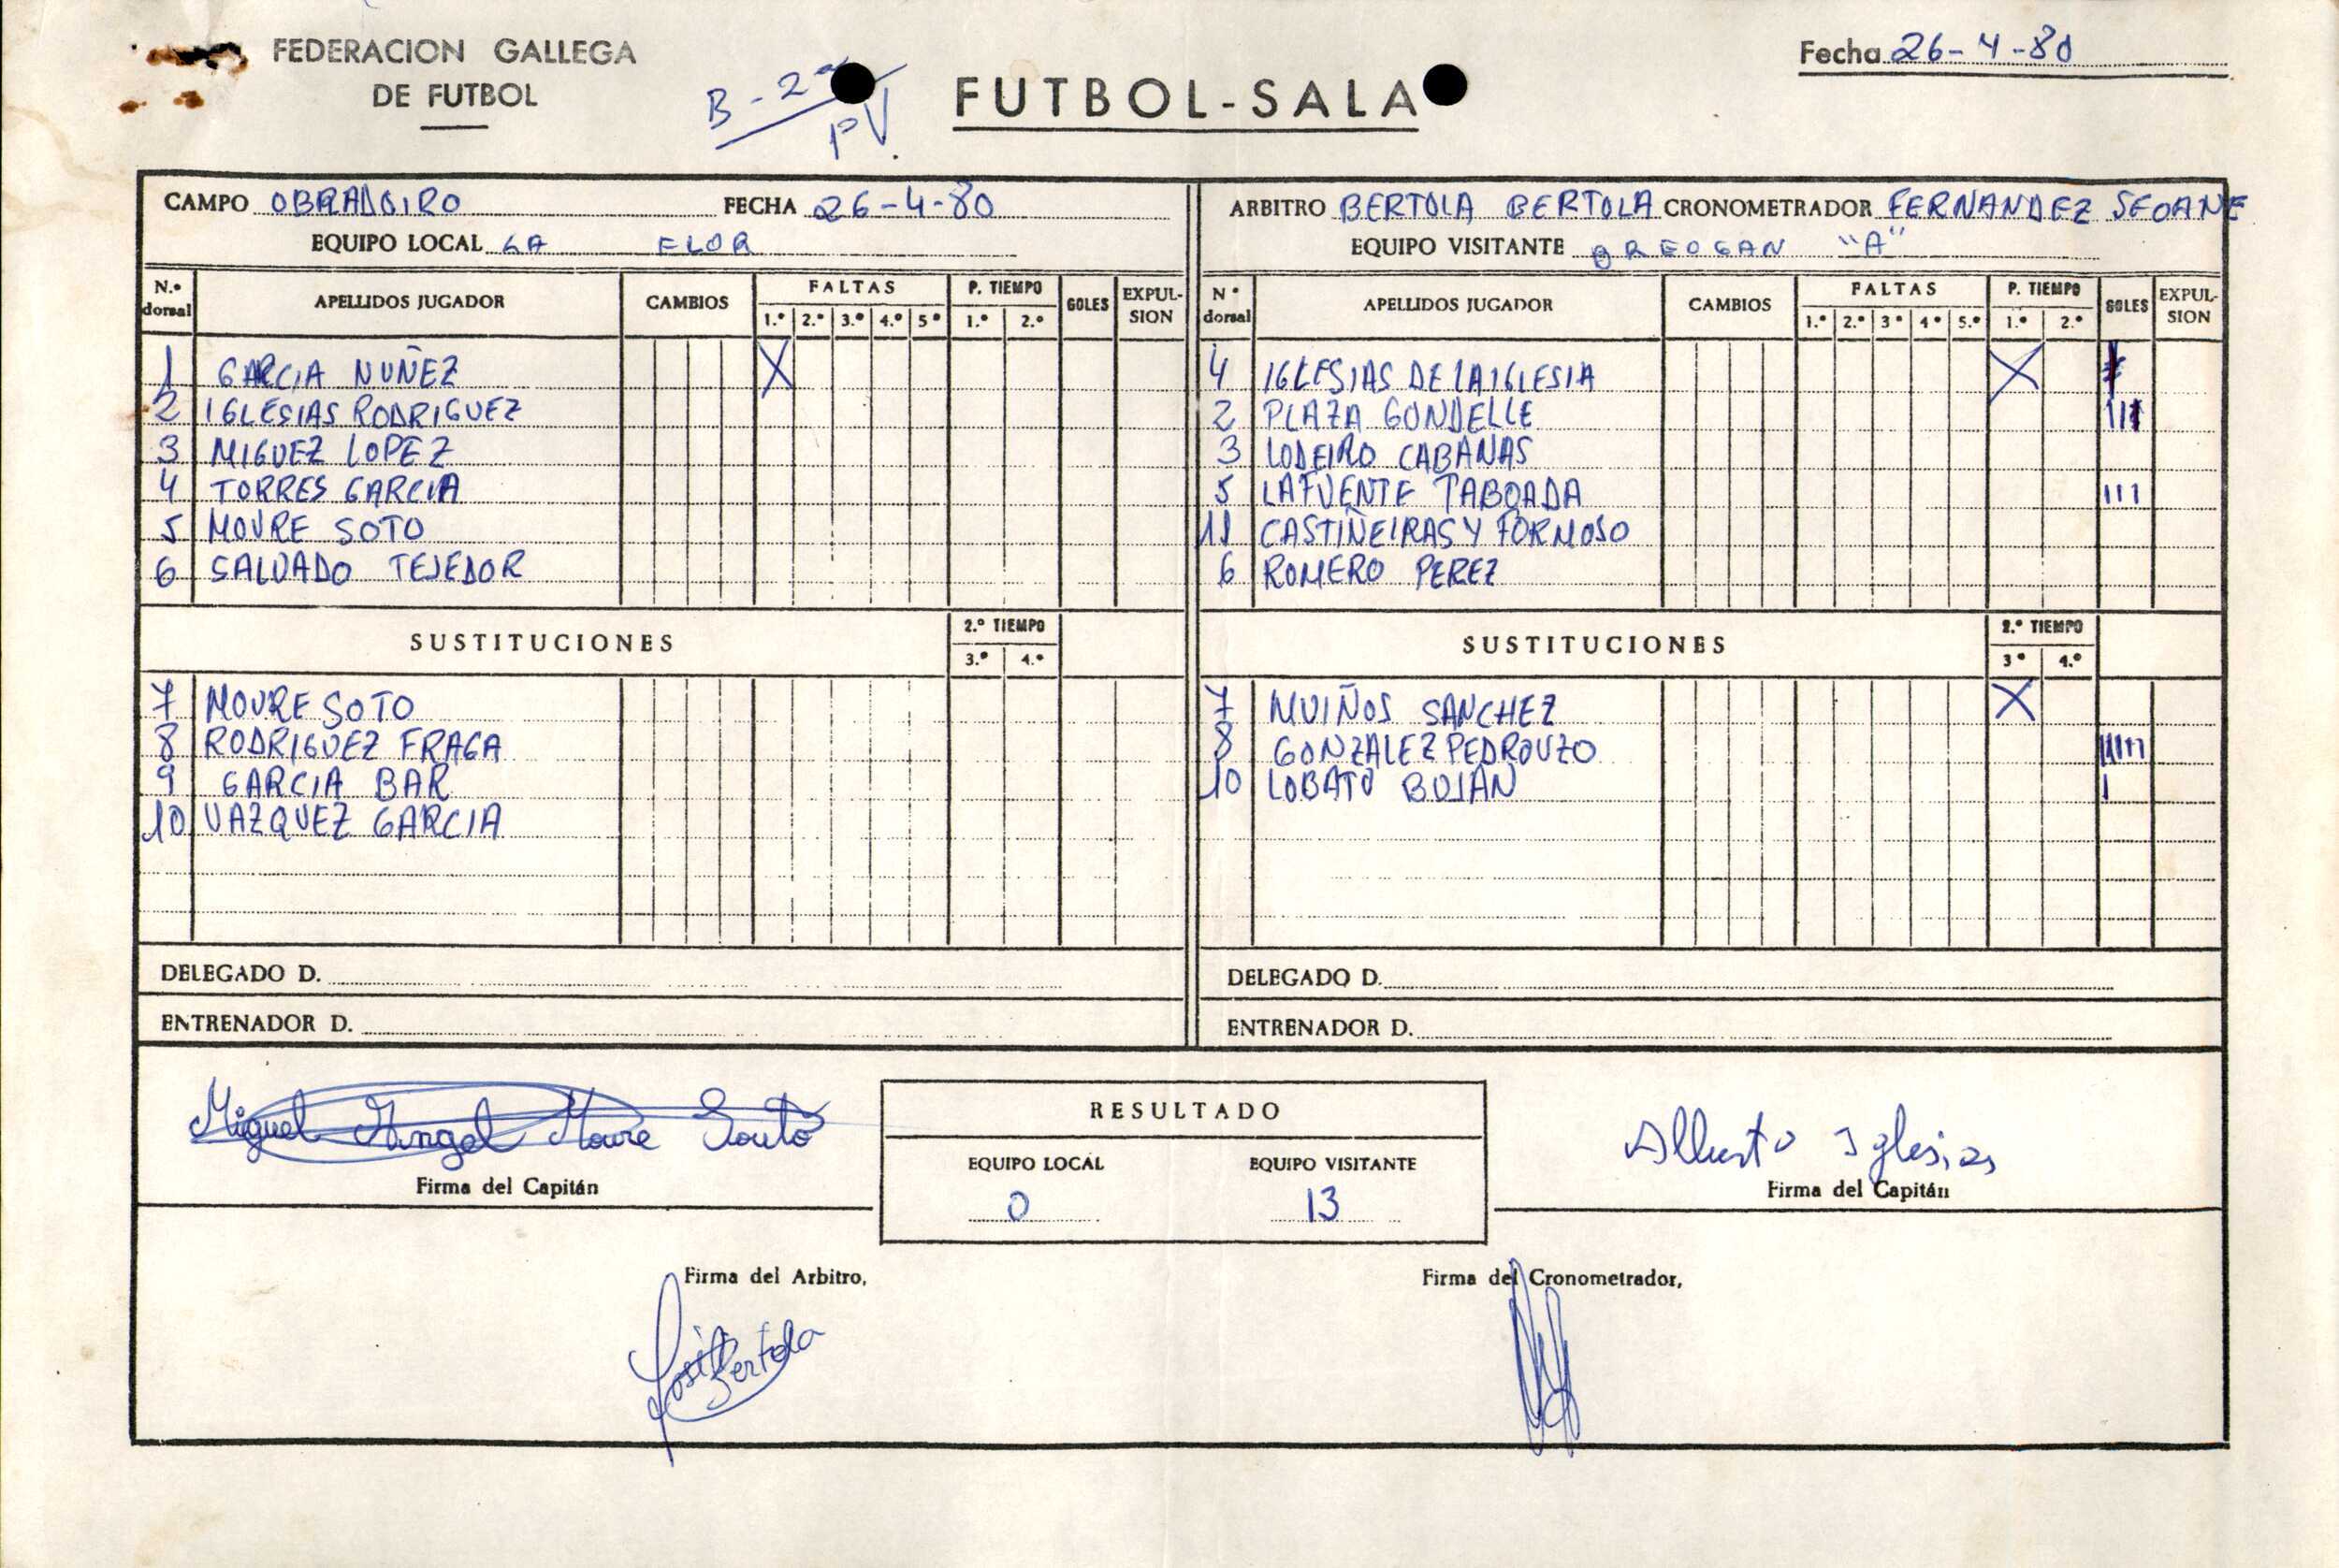 FEDERACION GALLEGA
DE FUTBOL
B-2ª
PV.
FUTBOL-SALA
Fecha 26-4-80
CAMPO OBRADOIRO FECHA 26-4-80
EQUIPO LOCAL LA FLOR
N.º dorsal APELLIDOS JUGADOR CAMBIOS FALTAS 1.º 2.º 3.º 4.º 5º P. TIEMPO 1.º 2.º GOLES EXPULSION
1 GARCIA NUÑEZ X
2 IGLESIAS RODRIGUEZ
3 MIGUEZ LOPEZ
4 TORRES GARCIA
5 MOURE SOTO
6 SALVADO TEJEDOR
SUSTITUCIONES 2.º TIEMPO 3.º 4.º
7 MOURE SOTO
8 RODRIGUEZ FRAGA
9 GARCIA BAR
10 VAZQUEZ GARCIA
DELEGADO D.
ENTRENADOR D.
ARBITRO BERTOLA BERTOLA CRONOMETRADOR FERNANDEZ SEOANE
EQUIPO VISITANTE BREOGAN "A"
Nº dorsal APELLIDOS JUGADOR CAMBIOS FALTAS 1.º 2.º 3º 4º 5.º P. TIEMPO 1.º 2.º GOLES EXPULSION
4 IGLESIAS DE LA IGLESIA X
2 PLAZA GONDELLE III
3 LODEIRO CABANAS
5 LAFUENTE TABOADA III
11 CASTIÑEIRAS Y FORMOSO
6 ROMERO PEREZ
SUSTITUCIONES 2.º TIEMPO 3º 4.º
7 MUIÑOS SANCHEZ X
8 GONZALEZ PEDROUZO IIIII
10 LOBATO BUJAN I
DELEGADO D.
ENTRENADOR D.
Miguel Angel Moure Souto
Firma del Capitán
RESULTADO
EQUIPO LOCAL EQUIPO VISITANTE
0 13
Alberto Iglesias
Firma del Capitán
Firma del Arbitro,
José Bertola
Firma del Cronometrador,